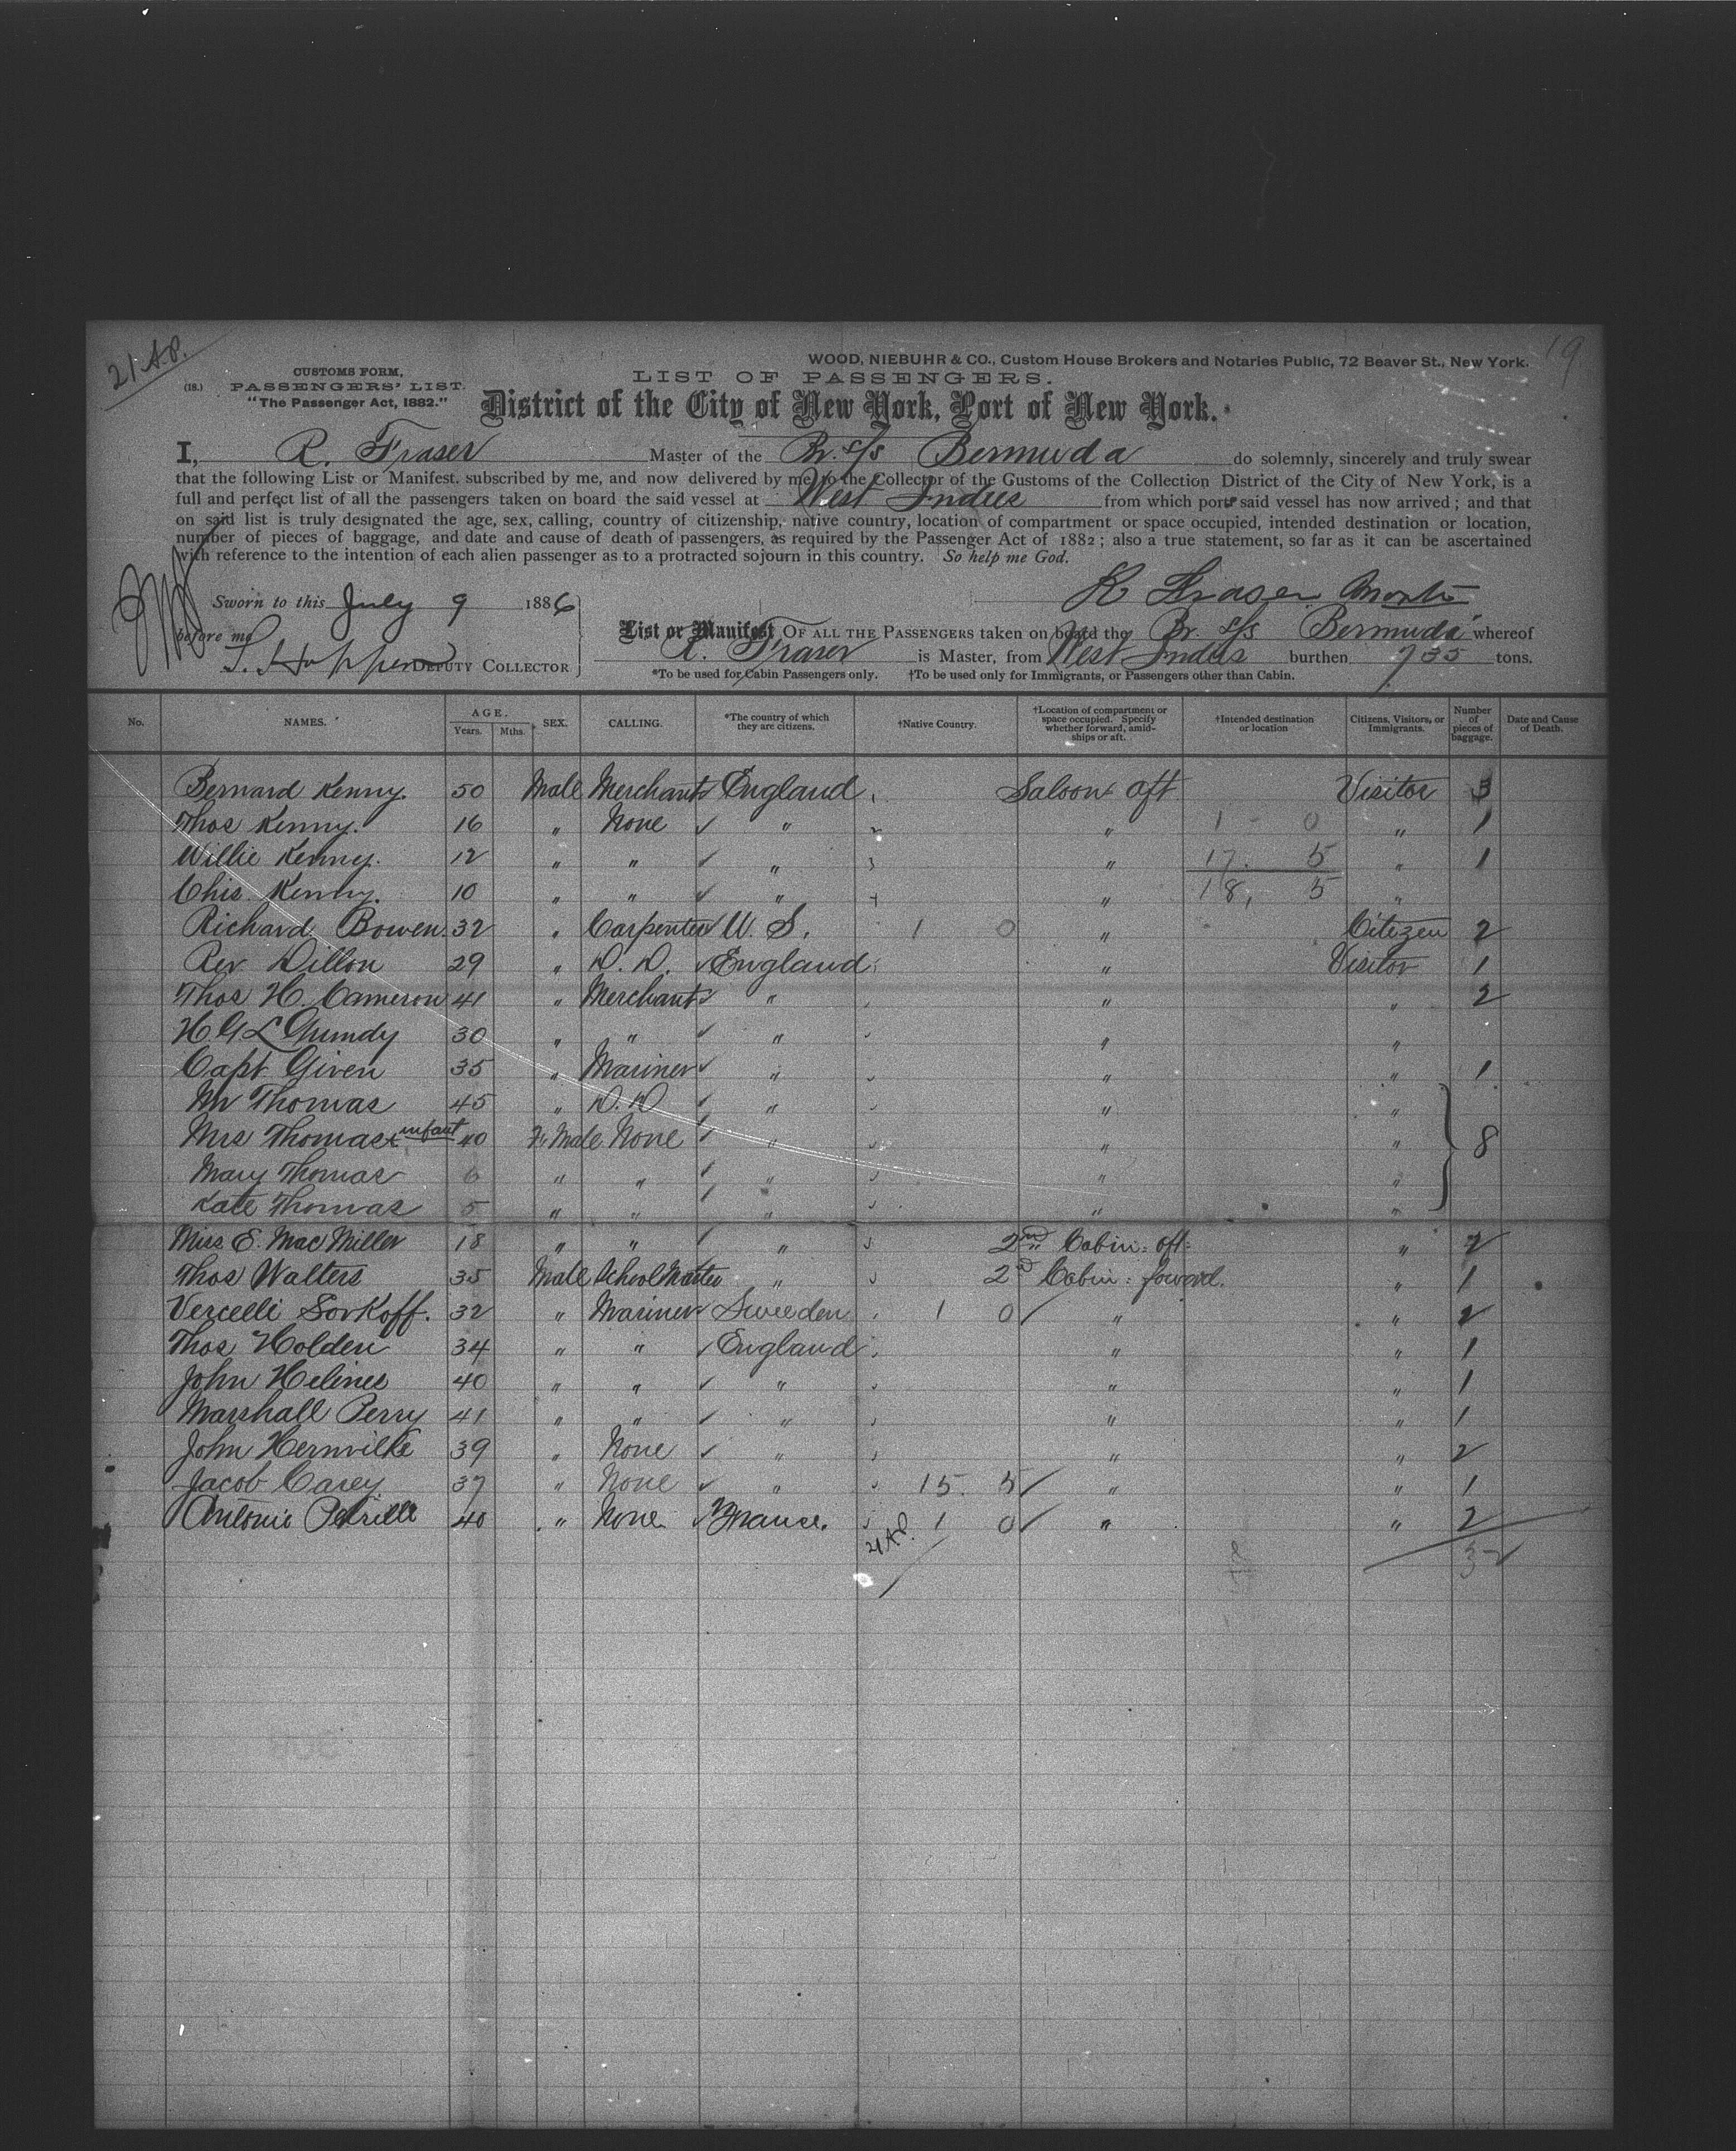 21 A.P.
19
WOOD, NIEBUHR & CO., Custom House Brokers and Notaries Public, 72 Beaver St., New York.
(18.) CUSTOMS FORM,
PASSENGERS' LIST.
"The Passenger Act, 1882."
LIST OF PASSENGERS.
District of the City of New York, Port of New York.
I, R. Fraser Master of the Br. s/s Bermuda do solemnly, sincerely and truly swear
that the following List or Manifest, subscribed by me, and now delivered by me to the Collector of the Customs of the Collection District of the City of New York, is a
full and perfect list of all the passengers taken on board the said vessel at West Indies from which port said vessel has now arrived; and that
on said list is truly designated the age, sex, calling, country of citizenship, native country, location of compartment or space occupied, intended destination or location,
number of pieces of baggage, and date and cause of death of passengers, as required by the Passenger Act of 1882; also a true statement, so far as it can be ascertained
with reference to the intention of each alien passenger as to a protracted sojourn in this country. So help me God.
Sworn to this July 9 1886
R Fraser
before me
DEPUTY COLLECTOR
List or Manifest OF ALL THE PASSENGERS taken on board the Br. s/s Bermuda whereof
R. Fraser is Master, from West Indies burthen 735 tons.
*To be used for Cabin Passengers only. †To be used only for Immigrants, or Passengers other than Cabin.
No. NAMES. AGE. Years. Mths. SEX. CALLING. *The country of which they are citizens. †Native Country. †Location of compartment or space occupied. Specify whether forward, amidships or aft. †Intended destination or location Citizens, Visitors, or Immigrants. Number of pieces of baggage. Date and Cause of Death.
Bernard Kenny. 50 Male Merchant England Saloon aft Visitor 3
Thos Kenny. 16 " None " " 1 0 " 1
Willie Kenny. 12 " " " " 17. 5 " 1
Chis. Kenny. 10 " " " " 18, 5 "
Richard Bowen. 32 " Carpenter U. S. 1 0 " Citizen 2
Rev Dillon 29 " D. D. England " Visitor 1
Thos H. Cameron 41 " Merchant " " " 2
H. G L Grundy 30 " " " " "
Capt Given 35 " Mariner " " " 1
Mr Thomas 45 " D. D " " "
Mrs Thomas & infant 40 Fe Male None " " " 8
Mary Thomas 6 " " " "
Kate Thomas 5 " " " " "
Miss E. MacMiller 18 " " " 2nd Cabin: aft: " 2
Thos Walters 35 Male SchoolMaster " 2d Cabin: foward. " 1
Vercelli Sorkoff. 32 " Mariner Sweeden 1 0 " " 2
Thos Holden 34 " " England " " 1
John Helines 40 " " " " " 1
Marshall Perry 41 " " " " " 1
John 39 " None " " " 2
Jacob Carey. 37 " None " 15. 5 " " 1
Antonio 40 " None France. 1 0 " " 2
21 A.P.